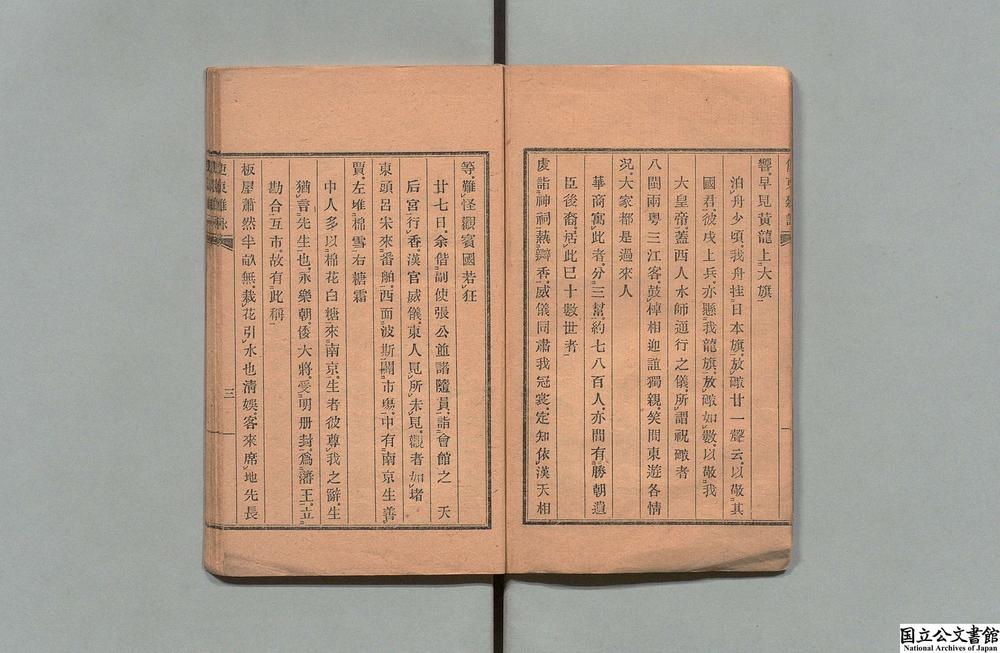 響、早見黃龍上大旗
泊舟少頃、我舟挂日本旗、放礮廿一聲云、以敬其
國君、彼戌上兵、亦懸我龍旗、放礮如數、以敬我
大皇帝、蓋西人水師通行之儀、所謂祝礮者
八閩兩粤三江客、鼓棹相迎誼獨親、笑問東遊各情
況、大家都是過來人
華商寓此者、分三幫、約七八百人、亦間有勝朝遺
臣後裔、居此已十數世者
虔詣神祠爇瓣香、威儀同肅我冠裳、定知依漢天相
等、難怪觀賓國若狂
廿七日、余偕副使張公並諸隨員、詣會館之 天
后宮行香、漢官威儀、東人見所未見、觀者如堵
東頭呂宋來番舶、西面波斯闢市場、中有南京生善
賈、左堆棉雪右糖霜
中人多以棉花白糖來、南京生者彼尊我之辭、生
猶言先生也、永樂朝、倭大將、受明册封、爲藩王、立
勘合互市、故有此稱
板屋蕭然半畝無、栽花引水也淸娛、客來席地先長
三